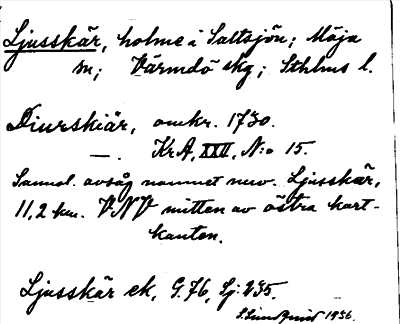 Ljusskär, holme i Saltsjön; Möja
sn; Värmdö skg; Sthlms l.
Diurskiär, omkr. 1730.
—. KrA, XXII, N:o 15.
Sannol. avsåg namnet nuv. Ljusskär,
11,2 km. VNV mitten av östra kart-
kanten.
Ljusskär ek, G.76, Sj: 235.
1936.